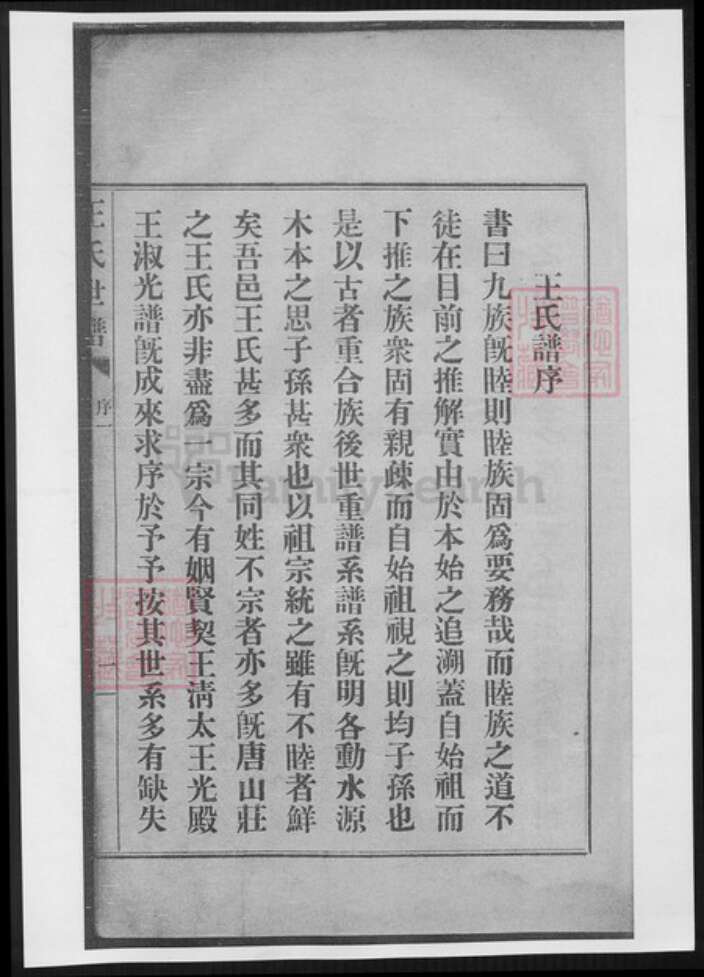 王氏譜序
書曰九族旣睦則睦族固爲要務哉而睦族之道不
徒在目前之推解實由於本始之追溯蓋自始祖而
下推之族衆固有親疎而自始祖視之則均子孫也
是以古者重合族後世重譜系譜系旣明各動水源
木本之思子孫甚衆也以祖宗統之雖有不睦者鮮
矣吾邑王氏甚多而其同姓不宗者亦多旣唐山莊
之王氏亦非盡爲一宗今有姻賢契王淸太王光殿
王淑光譜旣成來求序於予予按其世系多有缺失
王氏世譜
序一
FamilySearch